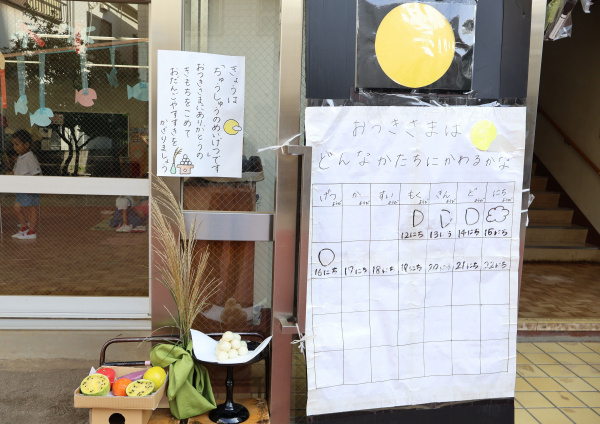 きょうは
「ちゅうしゅうのめいげつ」です
おつきさまにありがとうの
きもちをこめて
おだんごやすすきを
かざりましょう
おつきさまは
どんなかたちにかわるかな
げつ か すい もく きん ど にち
12にち 13にち 14にち 15にち
16にち 17にち 18にち 19にち 20にち 21にち 22にち